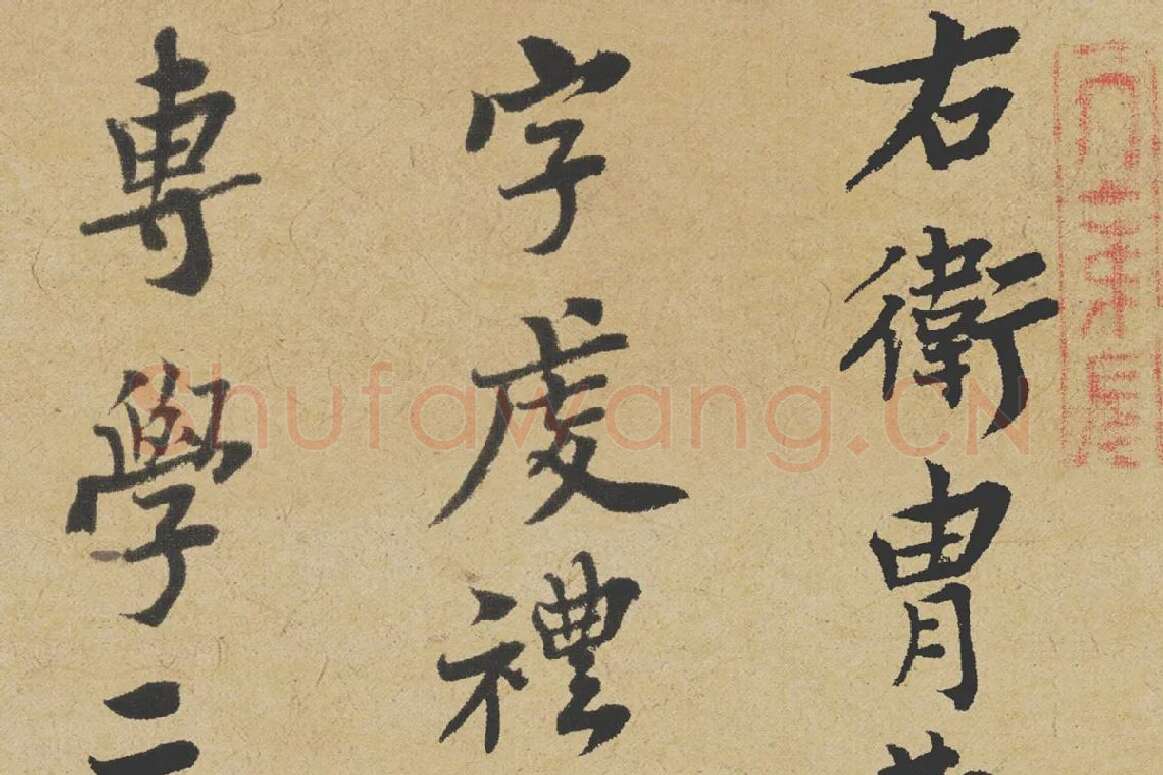 右衛冑
字虔禮
專學二
Shufawang.CN